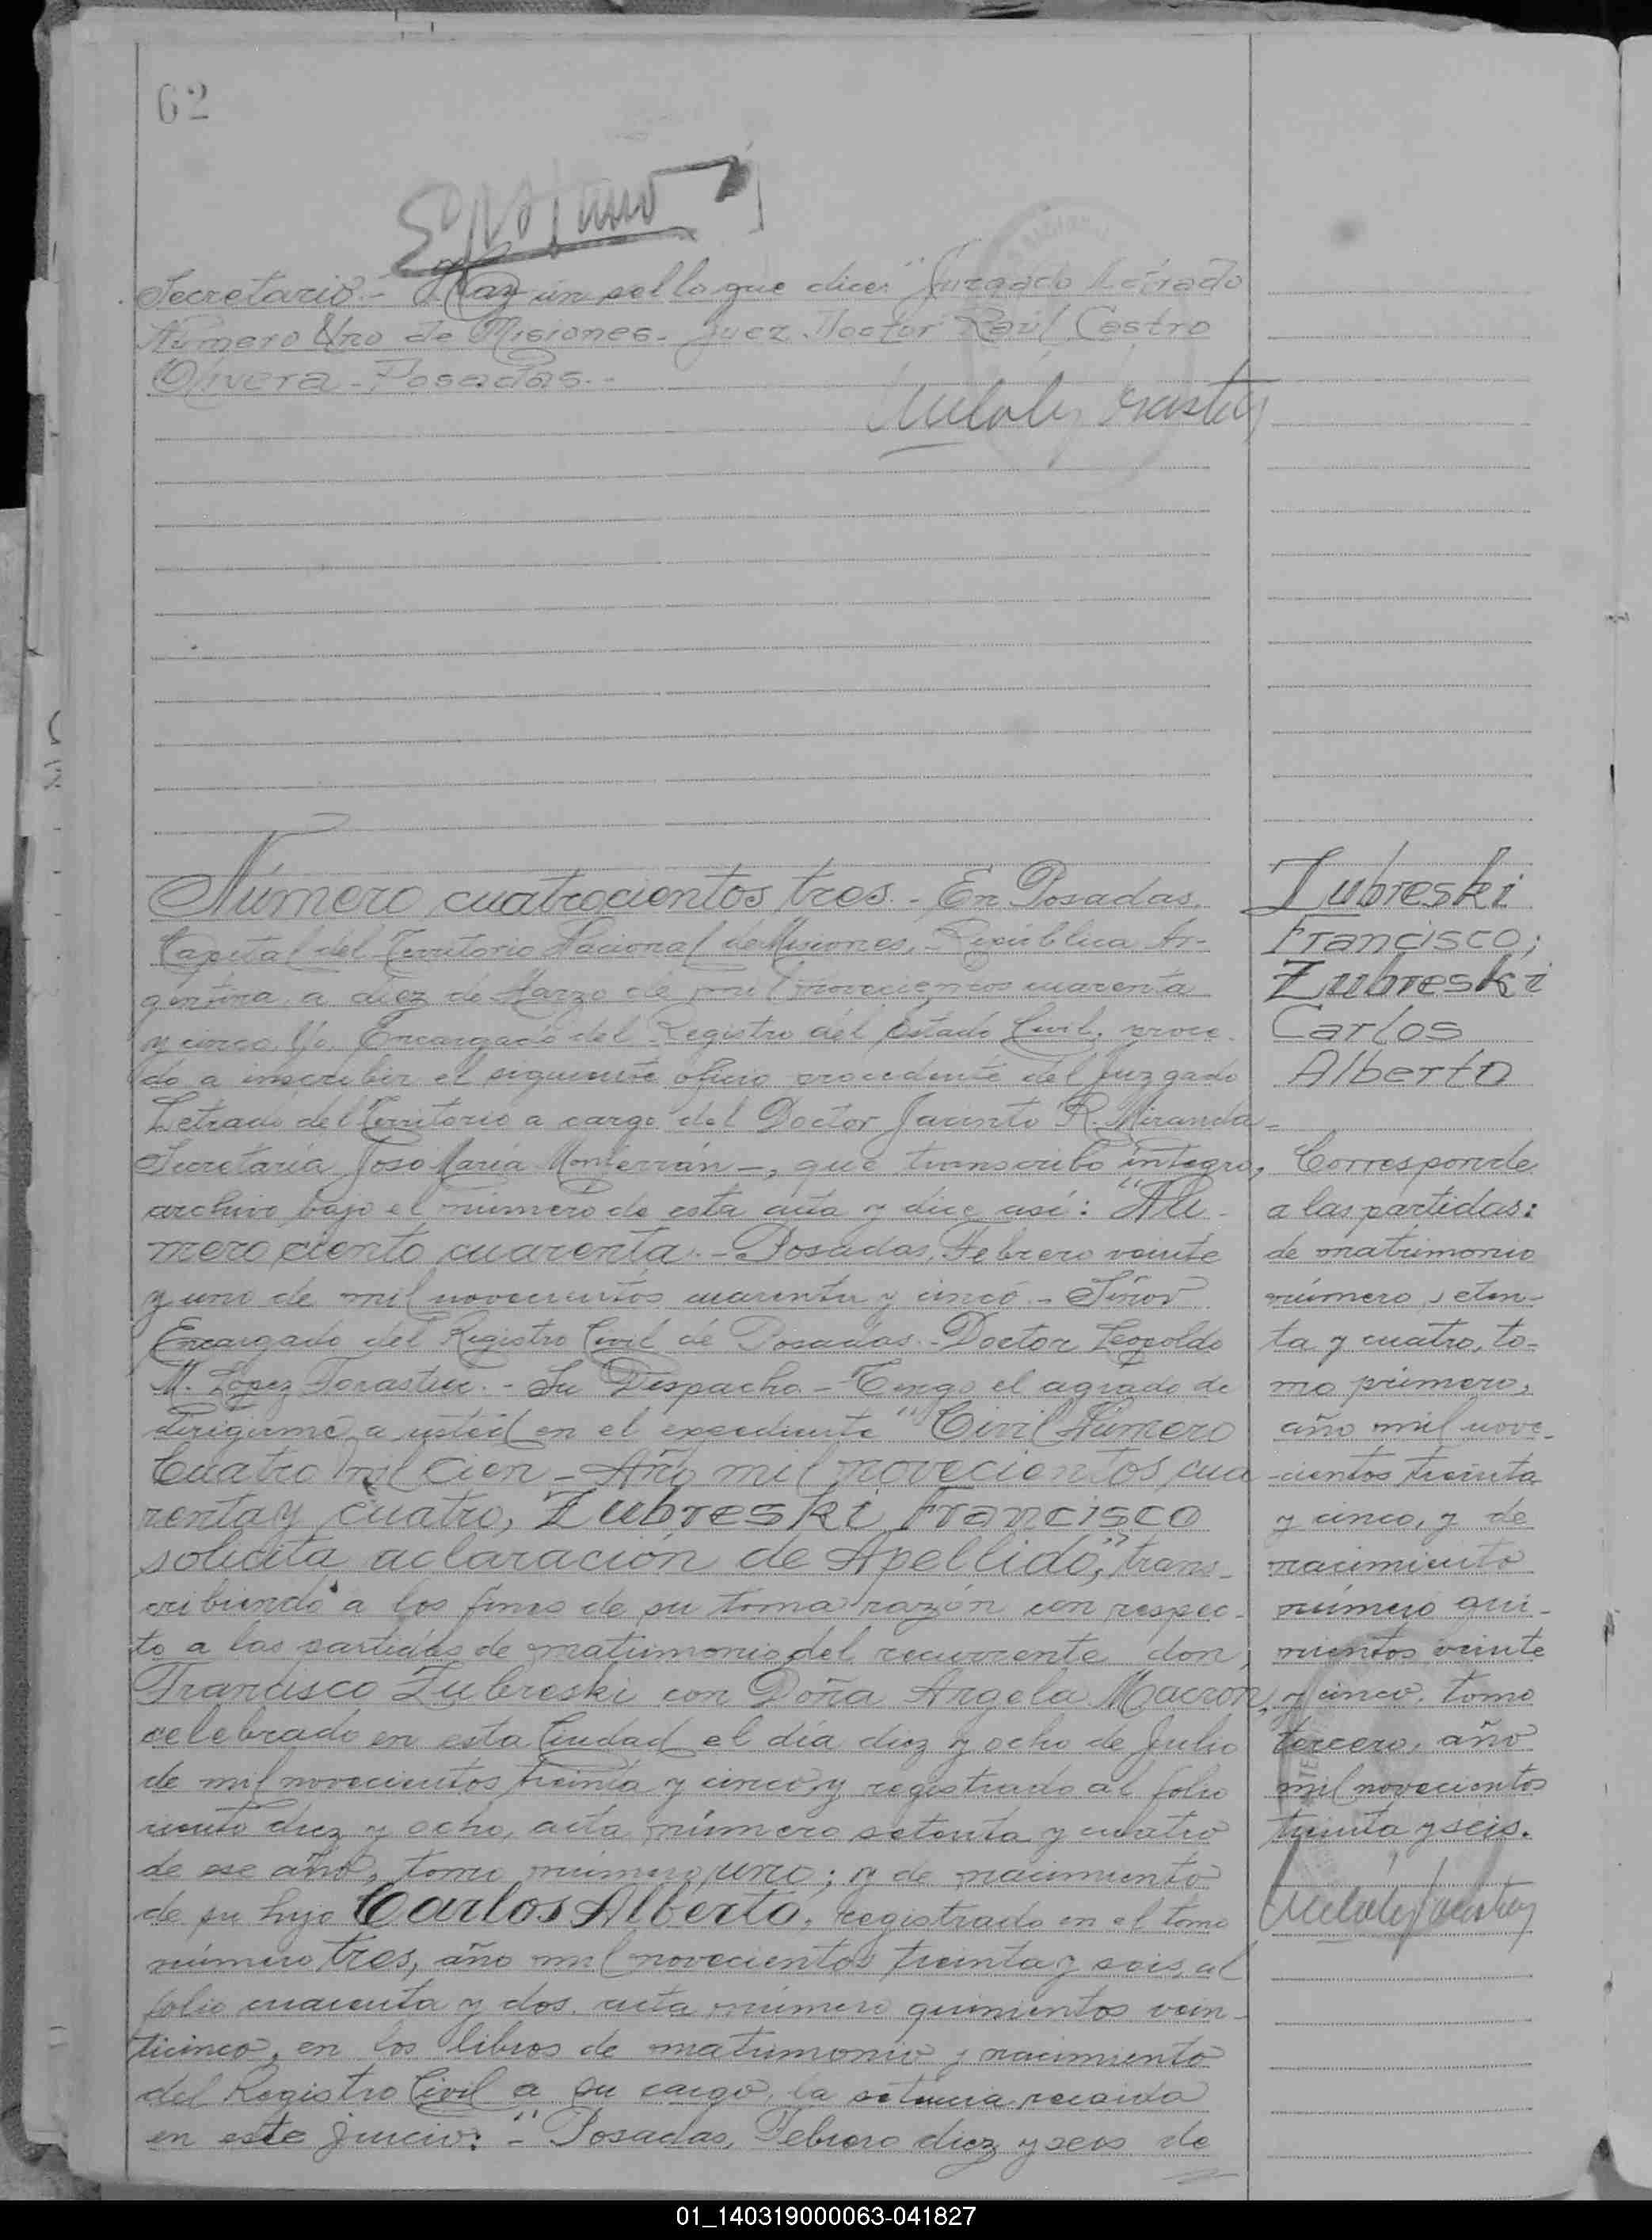 62
Secretario.- Hay un sello que dice: "Juzgado Letrado
Número Uno de Misiones. Juez Doctor Raúl Castro
Olivera - Posadas.-
Número cuatrocientos tres.- En Posadas,
Capital del Territorio Nacional de Misiones, República Ar-
gentina, a diez de Marzo de mil novecientos cuarenta
y cinco, Yo, Encargado del Registro del Estado Civil, proce-
do a inscribir el siguiente oficio procedente del Juzgado
Letrado del Territorio a cargo del Doctor Jacinto R. Miranda-
Secretaría José María Monferrán-, que transcribo íntegro,
archivo bajo el número de esta acta y dice así: "Nú-
mero ciento cuarenta.- Posadas, Febrero veinte
y uno de mil novecientos cuarenta y cinco.- Señor
Encargado del Registro Civil de Posadas.- Doctor Leopoldo
M. López Forastier.- Su Despacho.- Tengo el agrado de
dirigirme a usted en el expediente "Civil Número
Cuatro mil Cien - Año mil novecientos cua-
renta y cuatro, Zubreski Francisco
solicita aclaración de Apellido", trans-
cribiendo a los fines de su toma razón con respec-
to a las partidas de matrimonio del recurrente don
Francisco Zubreski con Doña Angela Macron,
celebrado en esta Ciudad el día diez y ocho de Julio
de mil novecientos treinta y cinco y registrado al folio
ciento diez y ocho, acta número setenta y cuatro
de ese año, tomo número uno; y de nacimiento
de su hijo Carlos Alberto, registrado en el tomo
número tres, año mil novecientos treinta y seis, al
folio cuarenta y dos, acta número quinientos vein-
ticinco, en los libros de matrimonio y nacimiento
del Registro Civil a su cargo, la setencia recaida
en este juicio: - "Posadas, Febrero diez y seis de
Zubreski
Francisco;
Zubreski
Carlos
Alberto
Corresponde
a las partidas:
de matrimonio
número seten-
ta y cuatro, to-
mo primero,
año mil nove-
cientos treinta
y cinco, y de
nacimiento
número qui-
nientos veinte
y cinco, tomo
tercero, año
mil novecientos
treinta y seis.
01_140319000063-041827